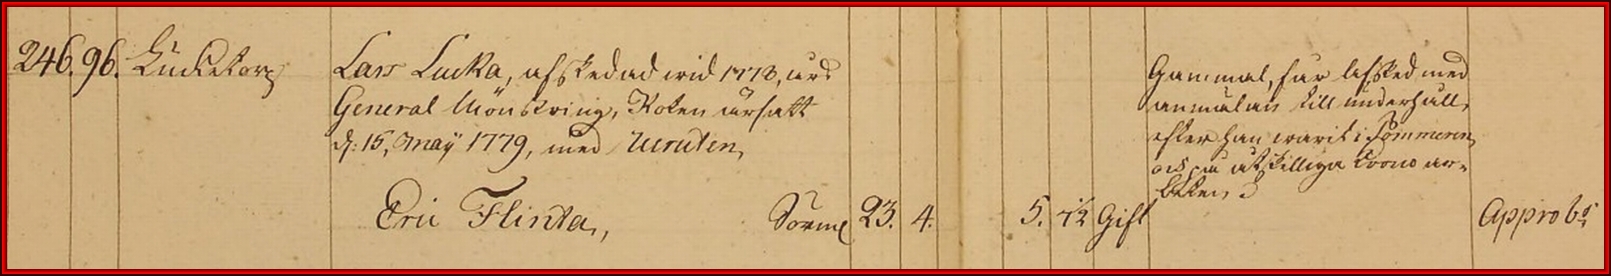 246. 96. Lucketorp
Lars Lucka, afskedad wid 1778, års
General Mönstring, Roten ärsatt
d: 15, May 1779, med Recruten,
Eric Flinta, Sörml 23. 4. 5. 7½ Gift
Gammal, får afsked med
anmälan till underhåll,
efter han warit i Pommern
och på åtskilliga Krono ar=
beten,
Approbs